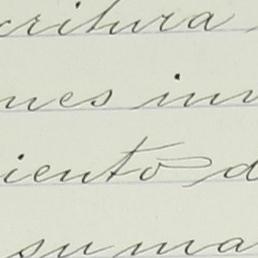 critura
nes inv
iento d
suma